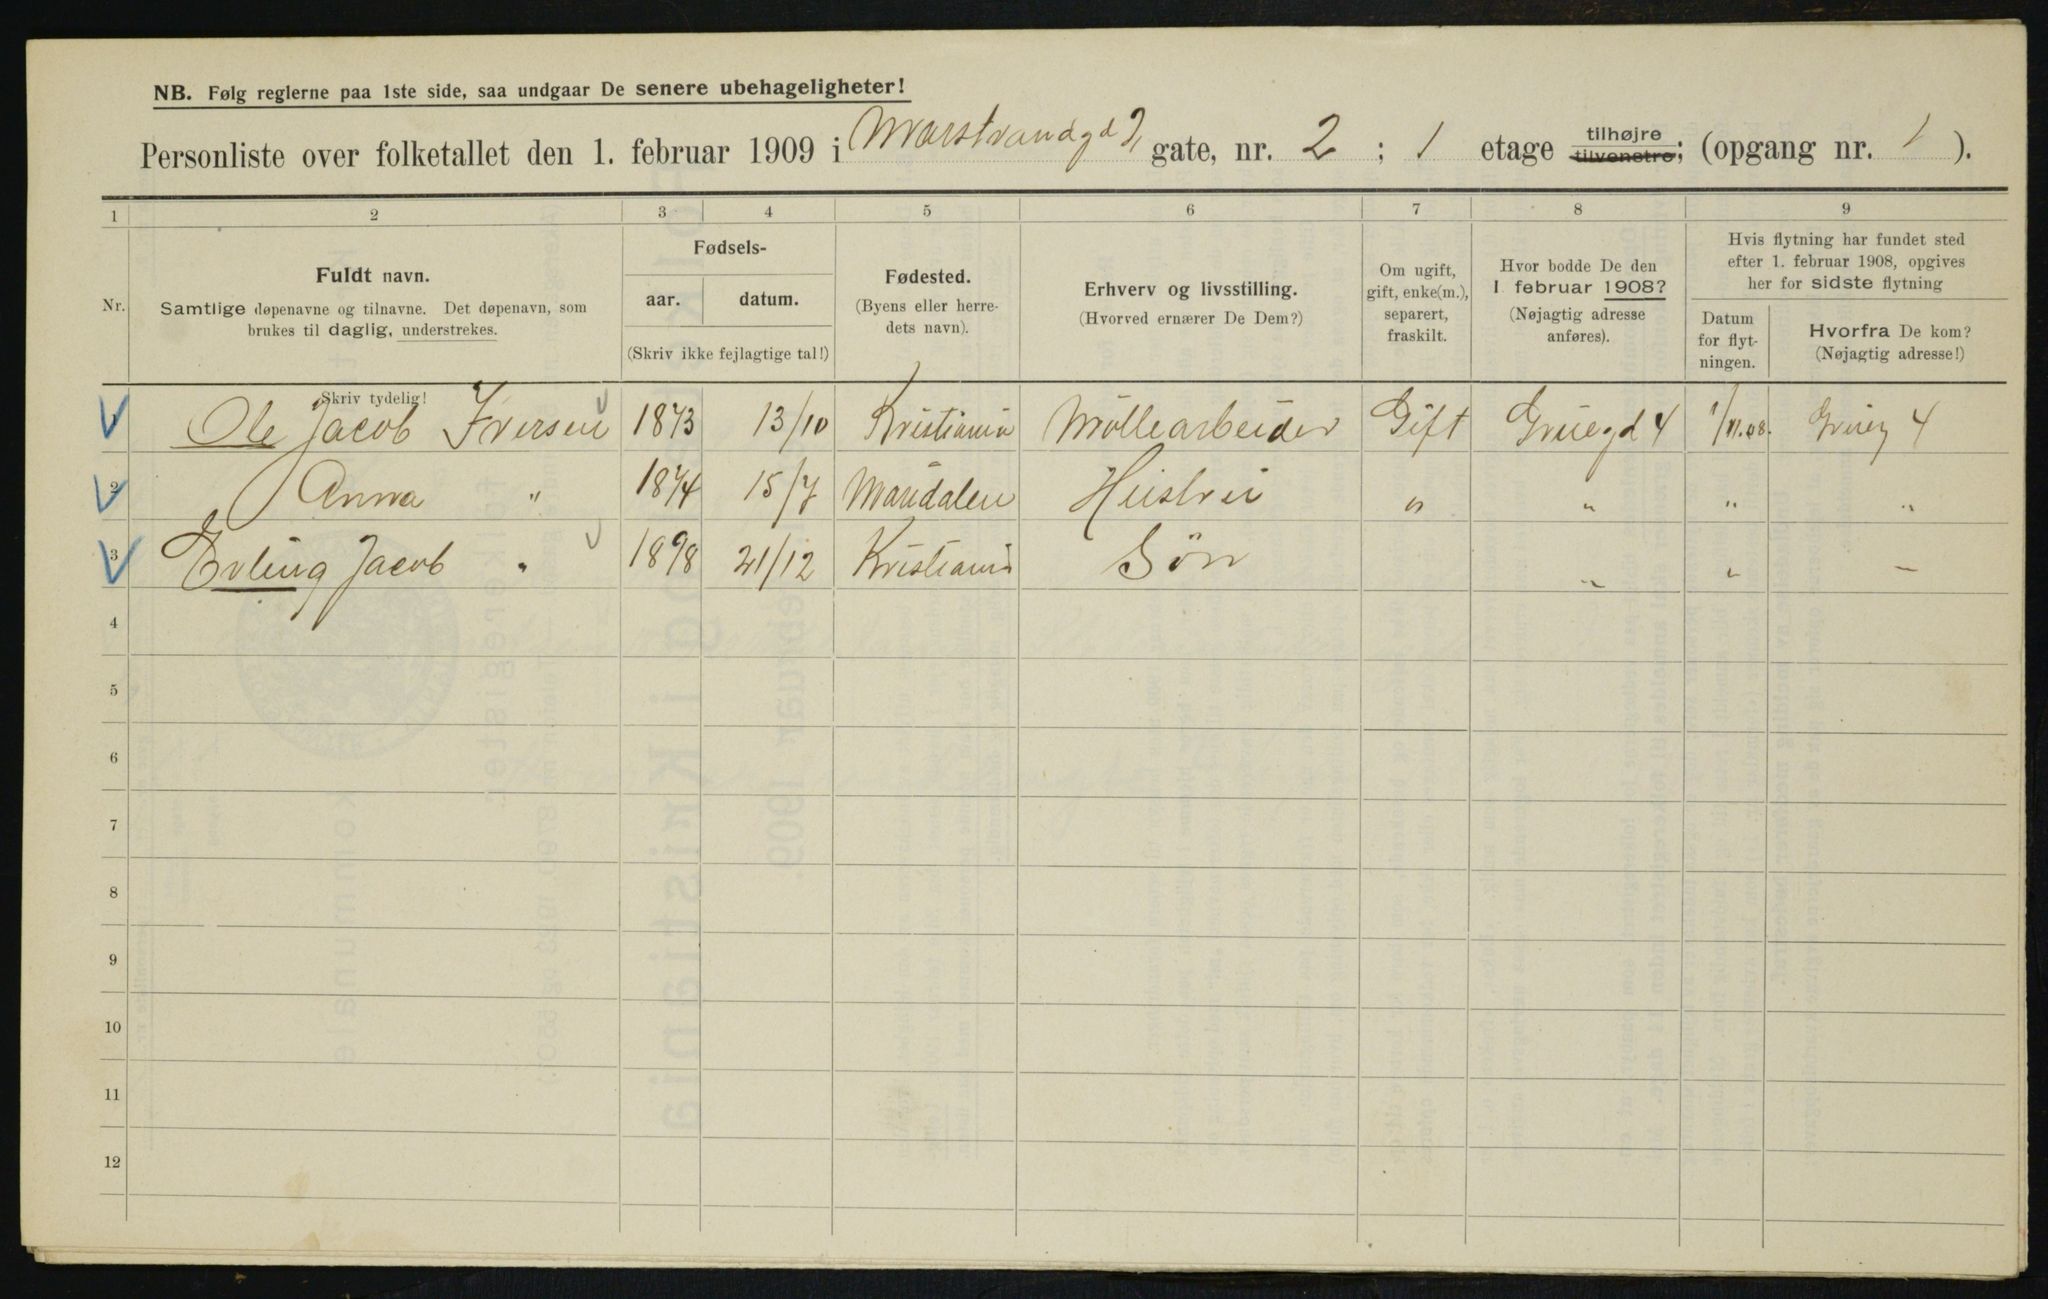 NB. Følg reglerne paa 1ste side, saa undgaar De senere ubehageligheter!
Personliste over folketallet den 1. februar 1909 i Marstrandgd 2, gate, nr. 2 ; 1 etage tilhøjre tilvenstre; (opgang nr. 1 ).
1 2 3 4 5 6 7 8 9
Nr.
Fuldt navn.
Samtlige døpenavne og tilnavne. Det døpenavn, som
brukes til daglig, understrekes.
Fødsels-
aar. datum.
(Skriv ikke fejlagtige tal!)
Fødested.
(Byens eller herre-
dets navn).
Erhverv og livsstilling.
(Hvorved ernærer De Dem?)
Om ugift,
gift, enke(m.),
separert,
fraskilt.
Hvor bodde De den
1 februar 1908?
(Nøjagtig adresse
anføres).
Hvis flytning har fundet sted
efter 1. februar 1908, opgives
her for sidste flytning
Datum
for flyt-
ningen.
Hvorfra De kom?
(Nøjagtig adresse!)
Skriv tydelig!
1 Ole Jacob Iversen 1873 13/10 Kristiania Møllearbeider Gift Gruegd 4 1/11.08. Grueg 4
2 Anna " 1874 15/7 Mandalen Hustru " " " "
3 Erling Jacob " 1898 21/12 Kristiania Søn " " "
4
5
6
7
8
9
10
11
12